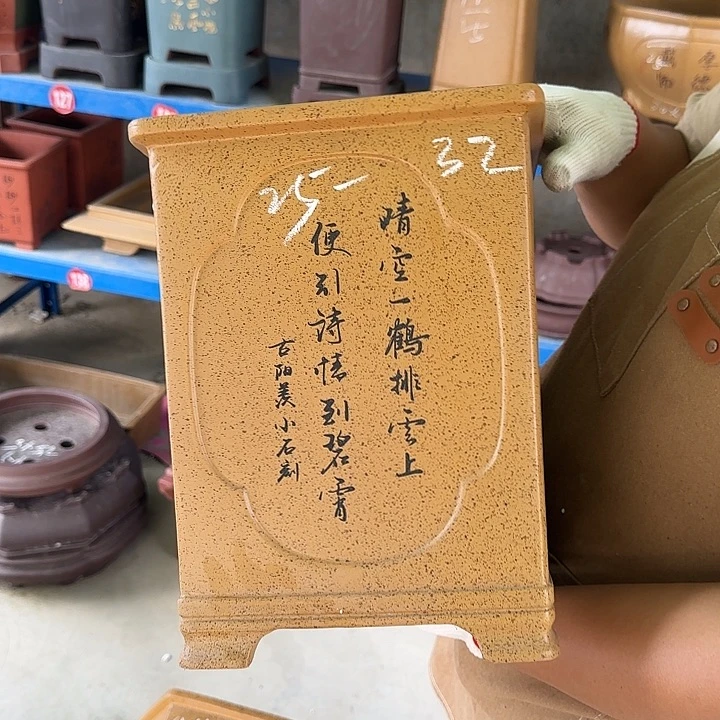 25-
32
晴空一鹤排雲上
便引詩情到碧霄
古陽羨小石刻
127